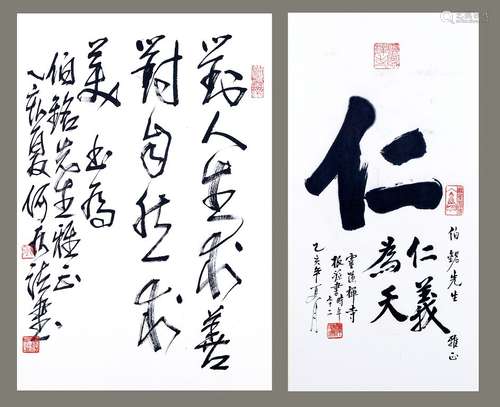 對人生求善
對自然求
美 書為
伯銘先生雅正
乙亥夏何應法書
仁
仁義
為天
伯銘先生
雅正
靈隱禪寺
根源書時年
七十二
乙亥年夏月